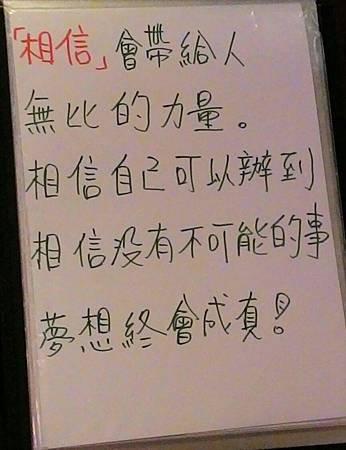 「相信」會帶給人
無比的力量。
相信自己可以辦到
相信没有不可能的事
夢想終會成真！